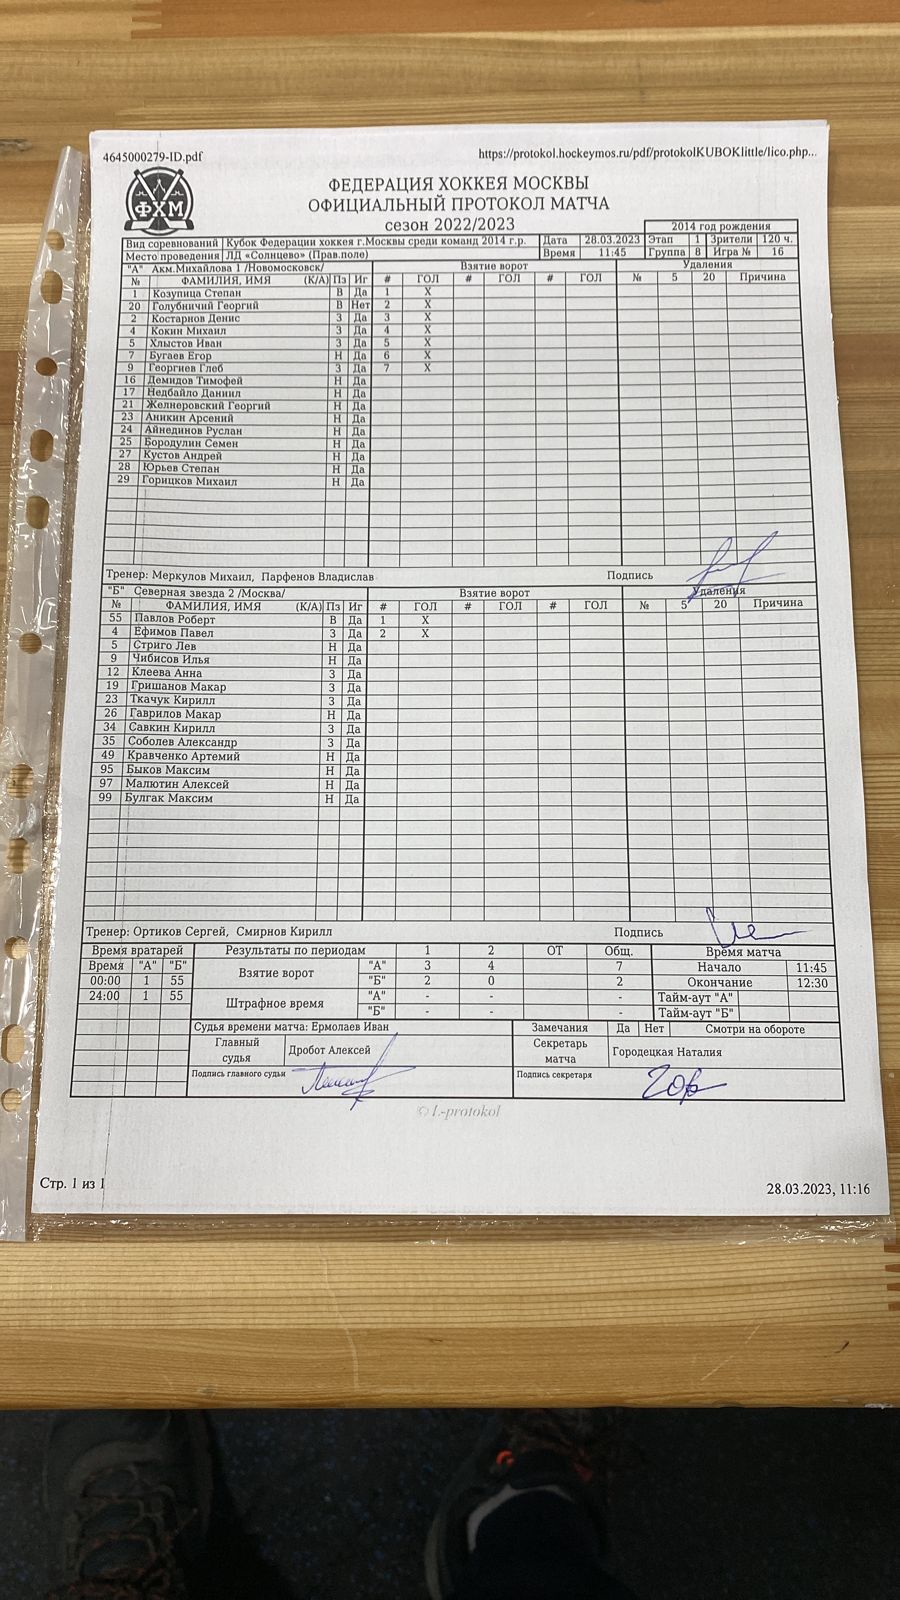 4645000279-ID.pdf https://protokol.hockeymos.ru/pdf/protokolKUBOKlittle/lico.php...
ФХМ
ФЕДЕРАЦИЯ ХОККЕЯ МОСКВЫ
ОФИЦИАЛЬНЫЙ ПРОТОКОЛ МАТЧА
сезон 2022/2023
2014 год рождения
Вид соревнований Кубок Федерации хоккея г.Москвы среди команд 2014 г.р. Дата 28.03.2023 Этап 1 Зрители 120 ч.
Место проведения ЛД «Солнцево» (Прав.поле) Время 11:45 Группа 8 Игра № 16
"А" Акм.Михайлова 1 /Новомосковск/ Взятие ворот Удаления
№ ФАМИЛИЯ, ИМЯ (К/А) Пз Иг # ГОЛ # ГОЛ # ГОЛ № 5 20 Причина
1 Козупица Степан В Да 1 X
20 Голубничий Георгий В Нет 2 X
2 Костарнов Денис З Да 3 X
4 Кокин Михаил З Да 4 X
5 Хлыстов Иван З Да 5 X
7 Бугаев Егор Н Да 6 X
9 Георгиев Глеб З Да 7 X
16 Демидов Тимофей Н Да
17 Недбайло Даниил Н Да
21 Желнеровский Георгий Н Да
23 Аникин Арсений Н Да
24 Айнединов Руслан Н Да
25 Бородулин Семен Н Да
27 Кустов Андрей Н Да
28 Юрьев Степан Н Да
29 Горицков Михаил Н Да
Тренер: Меркулов Михаил, Парфенов Владислав Подпись
"Б" Северная звезда 2 /Москва/ Взятие ворот Удаления
№ ФАМИЛИЯ, ИМЯ (К/А) Пз Иг # ГОЛ # ГОЛ # ГОЛ № 5 20 Причина
55 Павлов Роберт В Да 1 X
4 Ефимов Павел З Да 2 X
5 Стриго Лев Н Да
9 Чибисов Илья Н Да
12 Клеева Анна З Да
19 Гришанов Макар З Да
23 Ткачук Кирилл З Да
26 Гаврилов Макар Н Да
34 Савкин Кирилл З Да
35 Соболев Александр З Да
49 Кравченко Артемий Н Да
95 Быков Максим Н Да
97 Малютин Алексей Н Да
99 Булгак Максим Н Да
Тренер: Ортиков Сергей, Смирнов Кирилл Подпись
Время вратарей Результаты по периодам 1 2 ОТ Общ. Время матча
Время "А" "Б" Взятие ворот "А" 3 4 7 Начало 11:45
00:00 1 55 "Б" 2 0 2 Окончание 12:30
24:00 1 55 Штрафное время "А" - - - Тайм-аут "А"
"Б" - - - Тайм-аут "Б"
Судья времени матча: Ермолаев Иван Замечания Да Нет Смотри на обороте
Главный судья Дробот Алексей Секретарь матча Городецкая Наталия
Подпись главного судьи Подпись секретаря
© L-protokol
Стр. 1 из 1 28.03.2023, 11:16